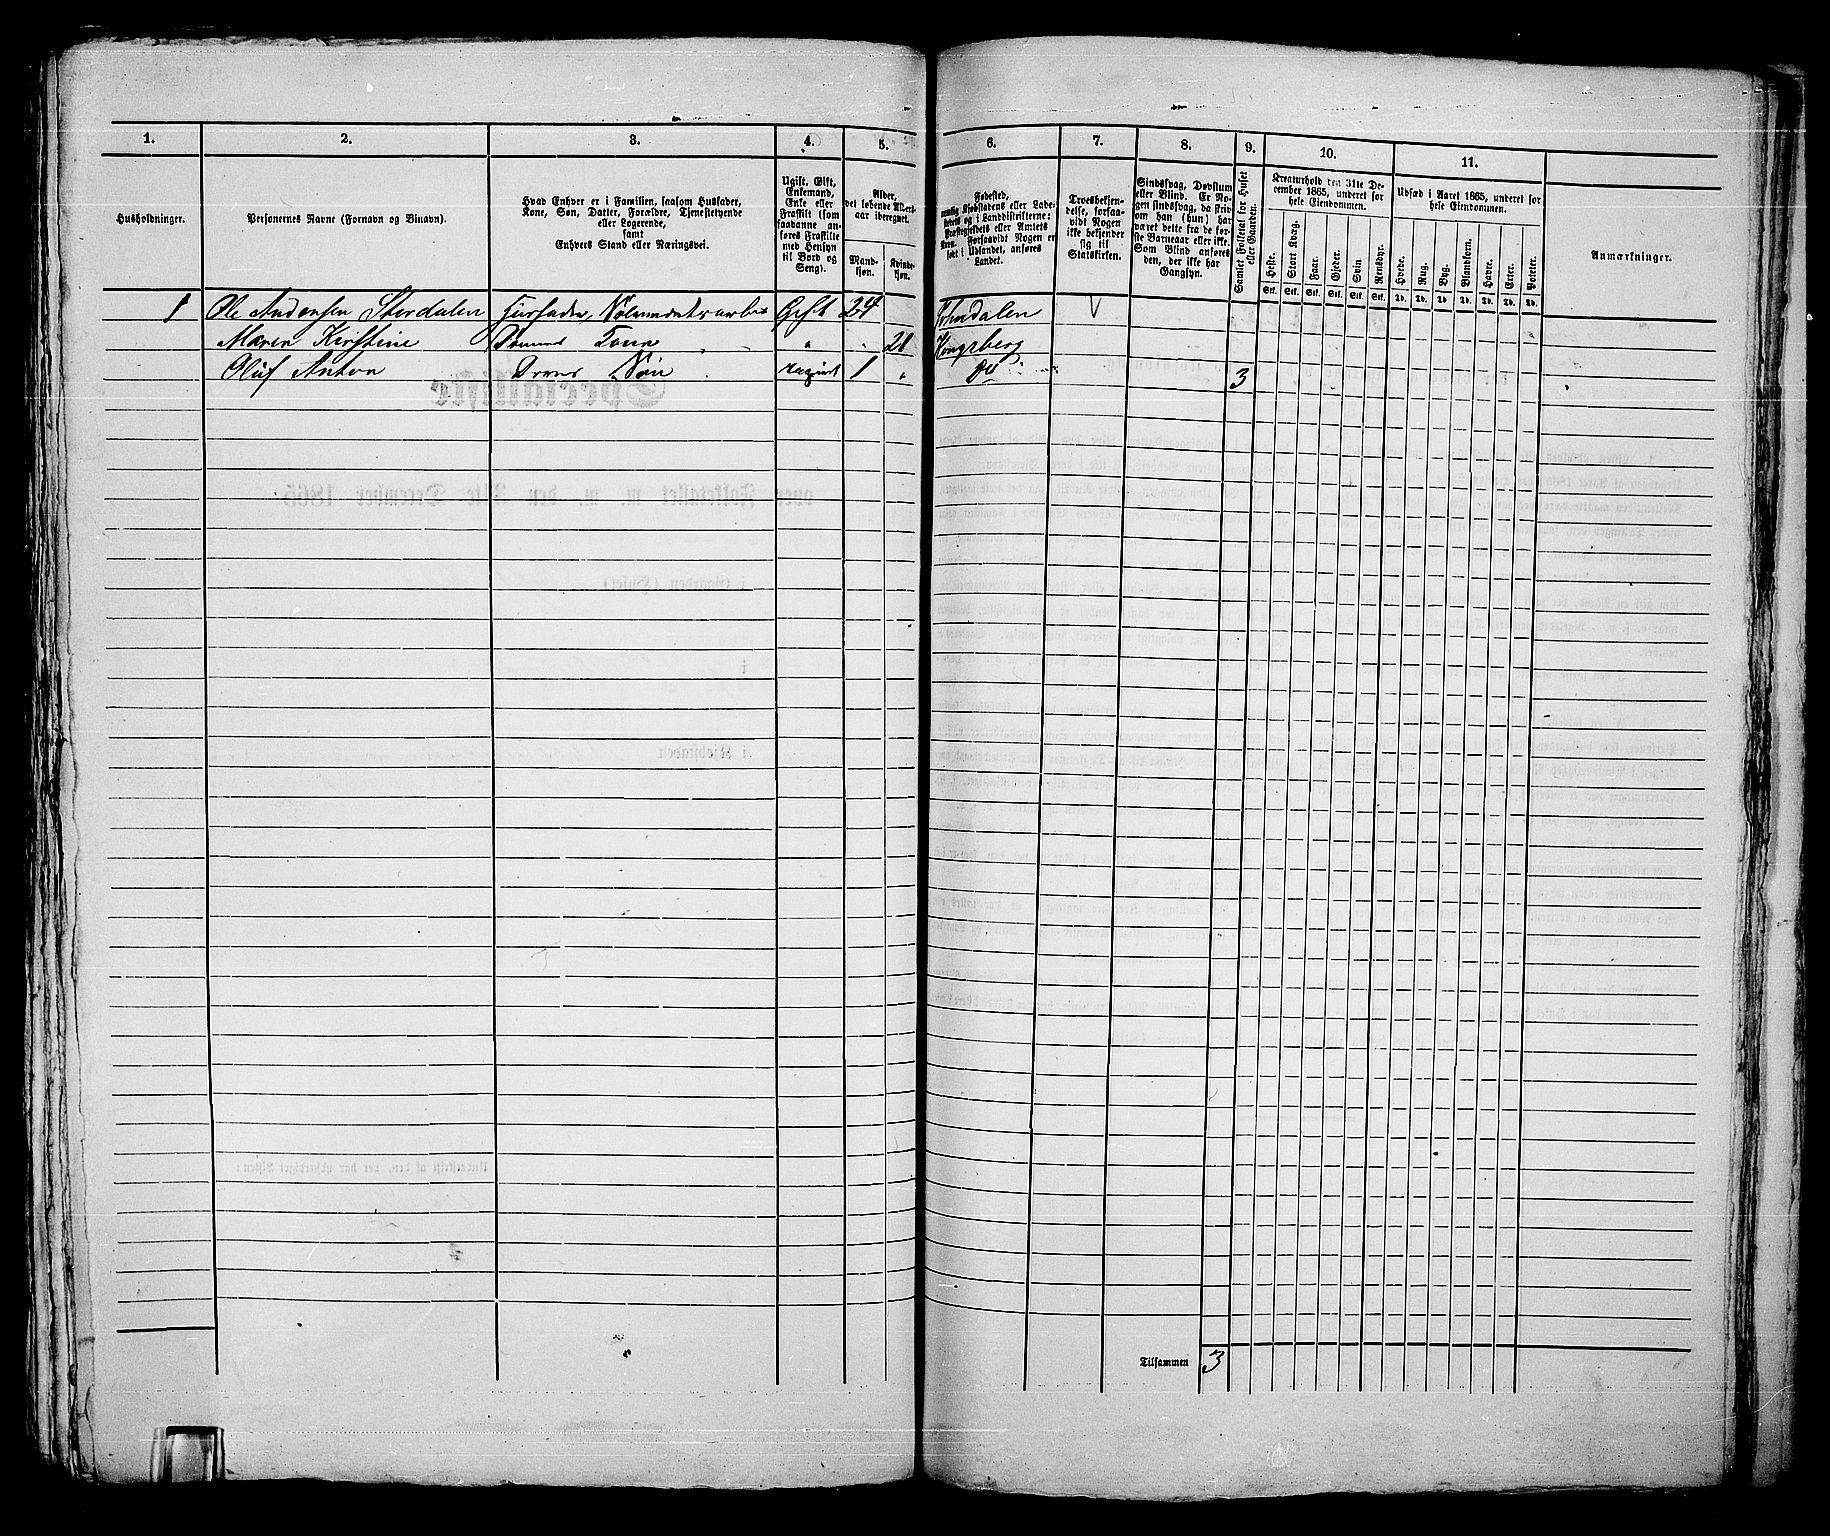 1.
2.
3.
4.
5.
6.
7.
8.
9.
10.
11.
Husholdninger.
Personernes Navne (Fornavn og Binavn).
Hvad Enhver er i Familien, saasom Husfader,
Kone, Søn, Datter, Forældre, Tjenestetyende
eller Logerende,
samt
Enhvers Stand eller Næringsvei.
Ugift, Gift,
Enkemand,
Enke eller
Fraskilt (som
saadanne an-
føres Fraskilte
med Hensyn
til Bord og
Seng).
Alder,
det løbende Alders-
aar iberegnet.
Mand-
kjøn.
Kvinde-
kjøn.
Fødested,
nemlig Kjøbstadens eller Lade-
stedets Navn og i Landdistrikterne:
Præstegjeldets eller Amtets
Navn. Forsaavidt Nogen er
født i Udlandet, anføres
Landet.
Troesbekjen-
delse, forsaa-
vidt Nogen
ikke bekjender
sig til
Statskirken.
Sindssvag, Døvstum
eller Blind. Er No-
gen sindssvag, da skriv
om han (hun) har
været dette fra de før-
ste Barneaar eller ikke.
Som Blind anføres
den, der ikke har
Gangsyn.
Samlet Folketal for Huset
eller Gaarden.
Kreaturhold den 31te De-
cember 1865, underet for
hele Eiendommen.
Heste.
Stort Kvæg.
Faar.
Gjeder.
Svin
Rensdyr.
Stk. Stk. Stk. Stk. Stk. Stk.
Udsæd i Aaret 1865, underet for
hele Eiendommen.
Hvede.
Rug.
Byg.
Blandkorn.
Havre.
Erter.
Poteter.
Td. Td. Td. Td. Td. Td. Td.
Anmærkninger.
1 Ole Andersen Stordalen Husfader, Gift 24
Maren Kirstine Kone " 26 Kongsberg
Oluf Anton Søn ugift 1 " do 3
Tilsammen 3